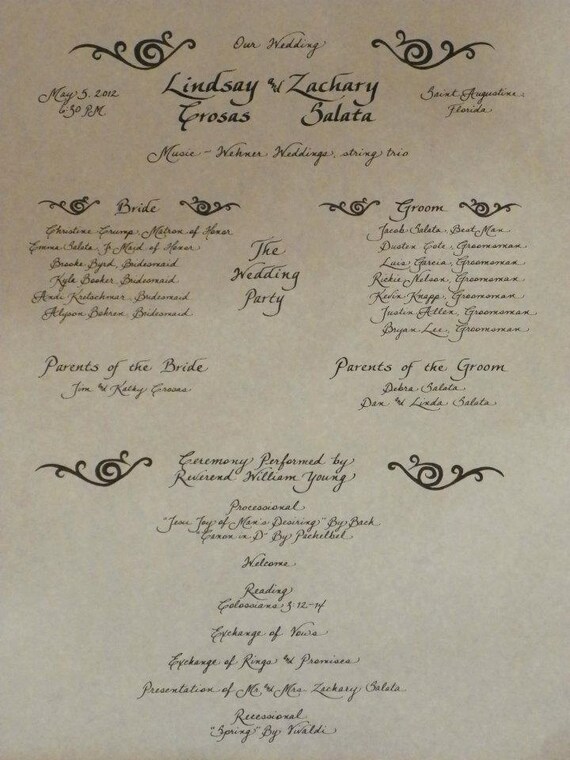 Our Wedding
May 5, 2012
6:30 PM
Lindsay and Zachary
Crosas Salata
Saint Augustine,
Florida
Music - Wehner Weddings, string trio
Bride
Christine Crump, Matron of Honor
Emma Salata, Jr Maid of Honor
Brooke Byrd, Bridesmaid
Kyle Booker, Bridesmaid
Andi Kretschmar, Bridesmaid
Alyson Bohren, Bridesmaid
The
Wedding
Party
Groom
Jacob Salata, Best Man
Dusten Cole, Groomsman
Luis Garcia, Groomsman
Rickie Nelson, Groomsman
Kevin Knapp, Groomsman
Justin Allen, Groomsman
Bryan Lee, Groomsman
Parents of the Bride
Jim and Kathy Crosas
Parents of the Groom
Debra Salata
Dan and Linda Salata
Ceremony Performed by
Reverend William Young
Processional
"Jesu Joy of Man's Desiring" By Bach
"Canon in D" By Pachelbel
Welcome
Reading
Colossians 3:12-14
Exchange of Vows
Exchange of Rings and Promises
Presentation of Mr. and Mrs. Zachary Salata
Recessional
"Spring" By Vivaldi